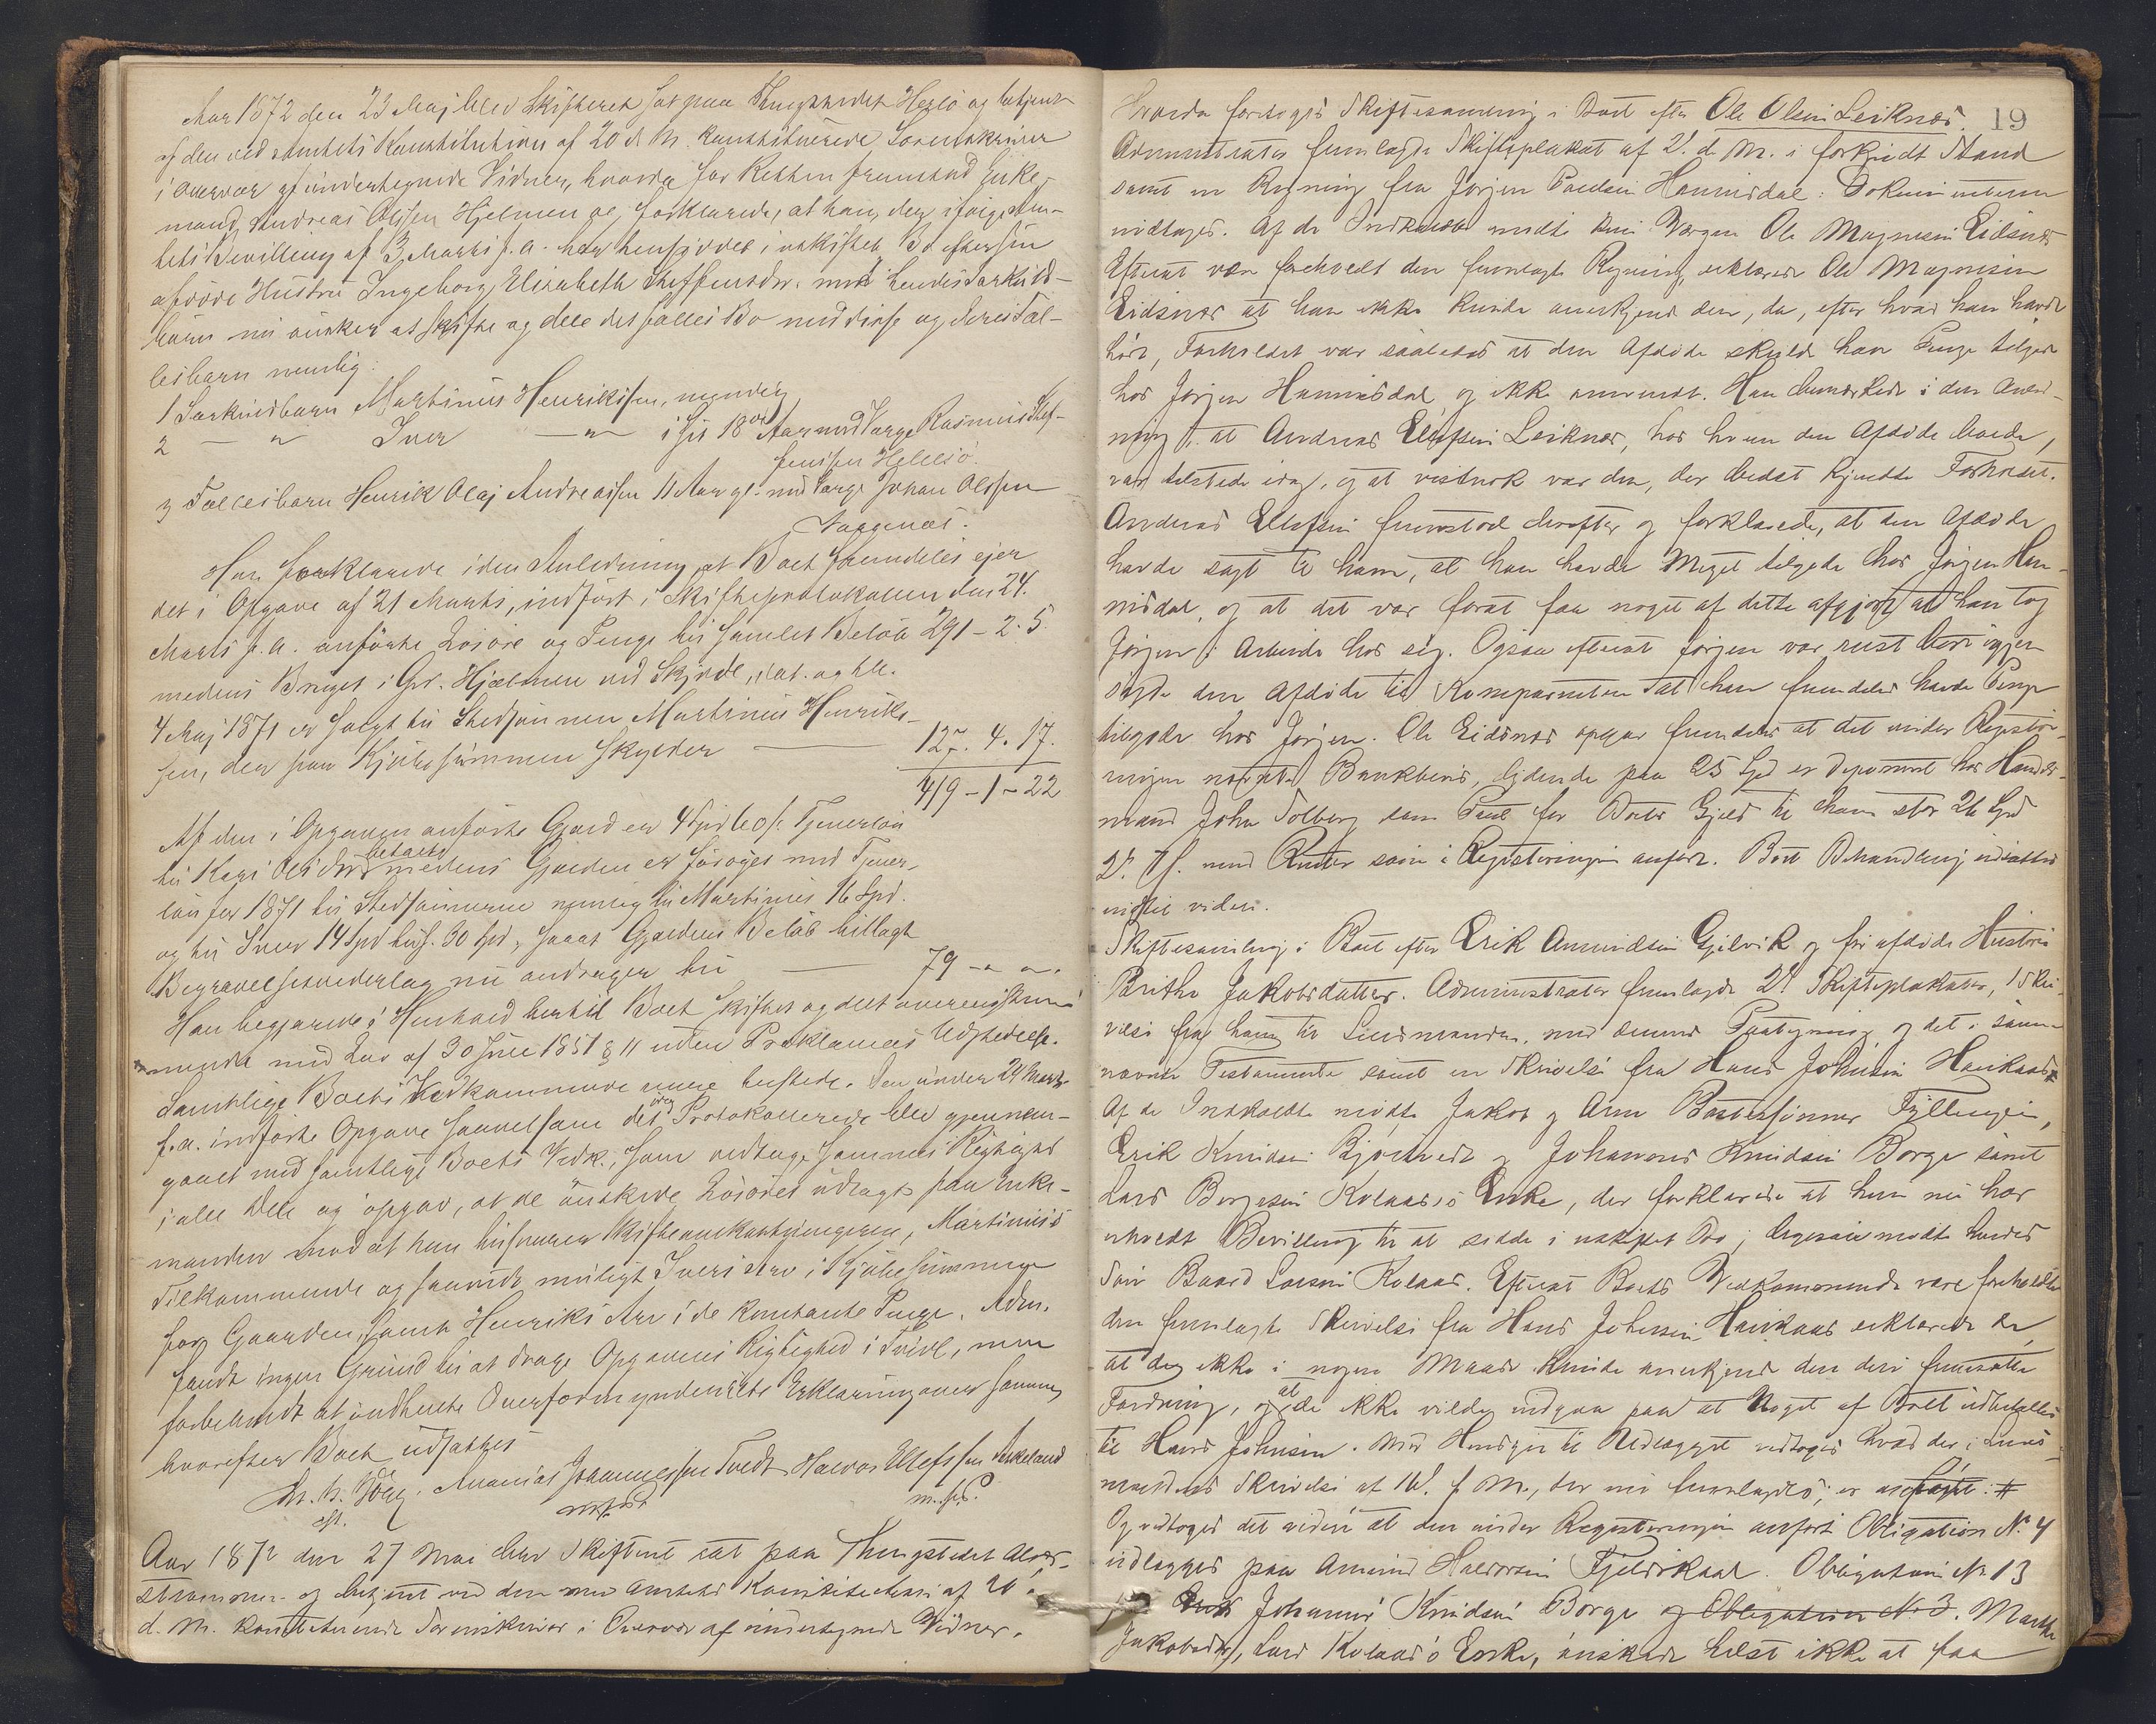 Aar 1872 den 23 Maj blev Skifteret sat paa Thingstedet Herlö og betjent
af den ved Amtets Konstitution af 20 d. M. konstituerede Sorenskriver
i Overvær af undertegnede Vidner, hvorda for Retten fremstod Enke-
mand Andreas Olsen Hjelmen og forklarede, at han, der ifølge Am-
tets Bevilling af 3 Marts f. A. har hensiddet i uskiftet Bo efter sin
afdöde Hustru Ingeborg Elisabeth Steffensdr. med hendes Særkuld-
börn nu önsker at skifte og dele det fælles Bo med disse og deres Fæl-
lesbarn nemlig:
1 Særkuldbarn Martinus Henriksen, myndig
2 — " Iver — " — i sit 18de Aar med Værge Rasmus Stef-
fensen Hellesö.
3 Fællesbarn Henrik Olaj Andreassen 11 Aar gl. med Værge Johan Olsen
Han forklarede i den Anledning at Boet fremdeles ejer
det i Opgave af 21 Marts, indfört i Skifteprotokollen den 24.
Marts f. A. anförte Lösöre og Penge til samlet Belöb 291 – 2. 5.
medens Bruget i Grd. Hjælmen ved Skjöde, dat. og thl.
4 Maj 1871 er solgt til Stedsönnen Martinus Henrik-
sen, der paa Kjöbesummen skylder — 127. 4. 17.
419 – 1 – 22
Af den i Opgaven anförte Gjæld er 4 Spd 60 s. Tjenerlön
til Kari Olsdr. betalt medens Gjælden er foröget med Tjener-
lön for 1871 til Stedsönnerne nemlig til Martinus 16 Spd.
og til Iver 14 Spd tils. 30 Spd, saaat Gjældens Belöb tillagt
Begravelsesvederlag nu andrager til — 79 – " – ".
Han begjærede i Henhold hertil Boet skiftet og det overensstem-
mende med Lov af 30 Juli 1851 § 11 uden Proklamas Udstedelse.
Samtlige Boets Vedkommende vare tilstede. Den under 24 Marts
f. A. indförte Opgave saavelsom det övrig Protokollerede blev gjennem-
gaaet med samtlige Boets Vedk., som vedtage sammes Rigtighed
i alle Dele og opgav, at de önskede Lösöret udlagt paa Enke-
manden mod at han tilsvarer Skifteomkostningerne, Martinus's
Tilkommende og saavidt muligt Ivers Arv i Kjöbesummen
for Gaarden, samt Henriks Arv i de kontante Penge. Adm.
fandt ingen Grund til at drage Opgavens Rigtighed i Tvivl, men
forbeholdt at indhente Overformynderiets Erklæring over samme,
hvorefter Boet udsattes
Ananias Johannessen Tvedt Halvor Ellefsen Askeland
m.f.P. m.f.P.
Aar 1872 den 27 Mai blev Skifteret sat paa Thingstedet Alver-
strømmen og betjent ved den med Amtets Konstitution af 20
d. M. konstituerede Sorenskriver i Overvær af undertegnede Vidner.
19
Hvorda foretoges Skiftesamling i Boet efter Ole Olsen Leiknes.
Administrator fremlagde Skifteplakat af 2. d. M. i forkyndt Stand
samt en Regning fra Jörgen Poulsen Hannisdal: Dokumenterne
modtages. Af de Indkaldte mödte kun Værgen Ole Magnesen Eidsnes
Efterat være foreholdt den fremlagte Regning, erklærede Ole Magnesen
Eidsnes at han ikke kunde anerkjende den, da, efter hvad han havde
hört, Forholdet var saaledes at den Afdöde skulde have Penge tilgode
hos Jörgen Hannisdal og ikke omvendt. Han bemærkede i den Anled-
ning at Andreas Ellefsen Leiknes, hos hvem den Afdöde boede,
var tilstede idag, og at vistnok var den, der bedst kjendte Forholdet.
Andreas Ellefsen fremstod derefter og forklarede, at den Afdöde
havde sagt til ham, at han havde Meget tilgode hos Jörgen Han-
nisdal, og at det var forat faa noget af dette afgjort at han tog
Jörgen i Arbeide hos sig. Ogsaa efterat Jörgen var reist bort igjen
sagde den Afdöde til Komparenten at han fremdeles havde Penge
tilgode hos Jörgen. Ole Eidsnes opgav fremdeles at det under Registre-
ringen nævnte Bankbevis, lydende paa 25 Spd er deponeret hos Handels-
mand John Solberg som Pant for Boets Gjeld til ham stor 26 Spd
2. s. med Renter som i Registreringen anført. Boets Behandling udsattes
indtil videre.
Skiftesamling i Boet efter Erik Amundsen Gjelvik og før afdöde Hustru
Brithe Jakobsdatter. Administrator fremlagde 2 Skifteplakater, 1 Skri-
velse fra ham til Lensmanden med dennes Paategning og det i samme
nævnte Testamente samt en Skrivelse fra Hans Johnsen Haukaas
Af de Indkaldte mødte Jakob og Arne Fyllingen,
Erik Knudsen og Johannes Knudsen Borge samt
Lars Børgesen Kolaas's Enke, der forklarede at hun nu har
erholdt Bevilling til at sidde i uskiftet Bo; ligesaa mødte hendes
Søn Baard Larsen Kolaas. Efterat Boets Vedkommende vare foreholdt
den fremlagte Skrivelse fra Hans Johnsen Haukaas erklærede de
at de ikke i nogen Maade kunde anerkjende den deri fremsatte
Fordring, og at de ikke vilde indgaa paa at Noget af Boet udbetaltes
til Hans Johnsen. Med Hensyn til Udlægget vedtoges hvad der i Lens-
mandens Skrivelse af 16. f. M., der nu fremlagdes, er
Og vedtoges det videre at den under Registreringen anførte Obligation No. 4
udlægges paa Amund Haldorsen Fjeldskaal. Obligation No 13
paa Johannes Knudsen Borge og Obligation No 3. Marthe
Jakobsdtr, Lars Kolaas's Enke, ønskede helst ikke at faa